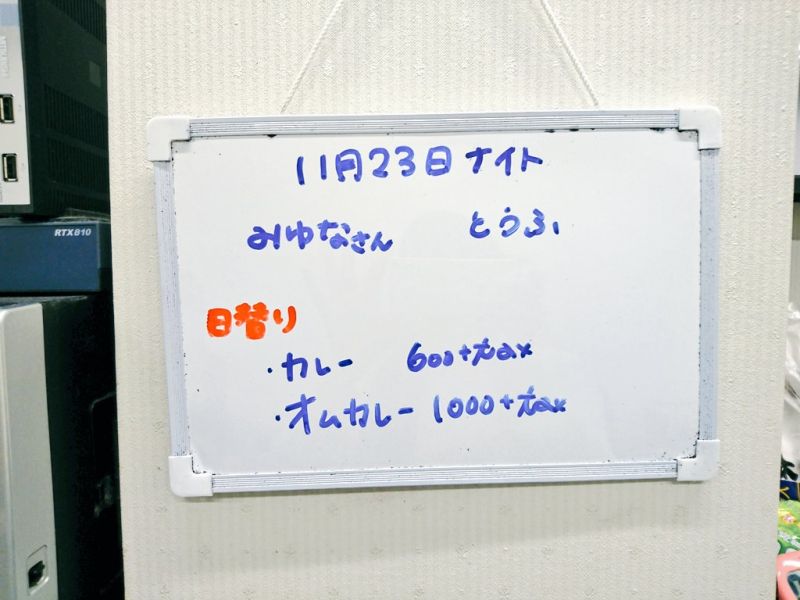 RTX810
11月23日ナイト
みゆなさん とうふ
日替り
・カレー 600+tax
・オムカレー 1000+tax